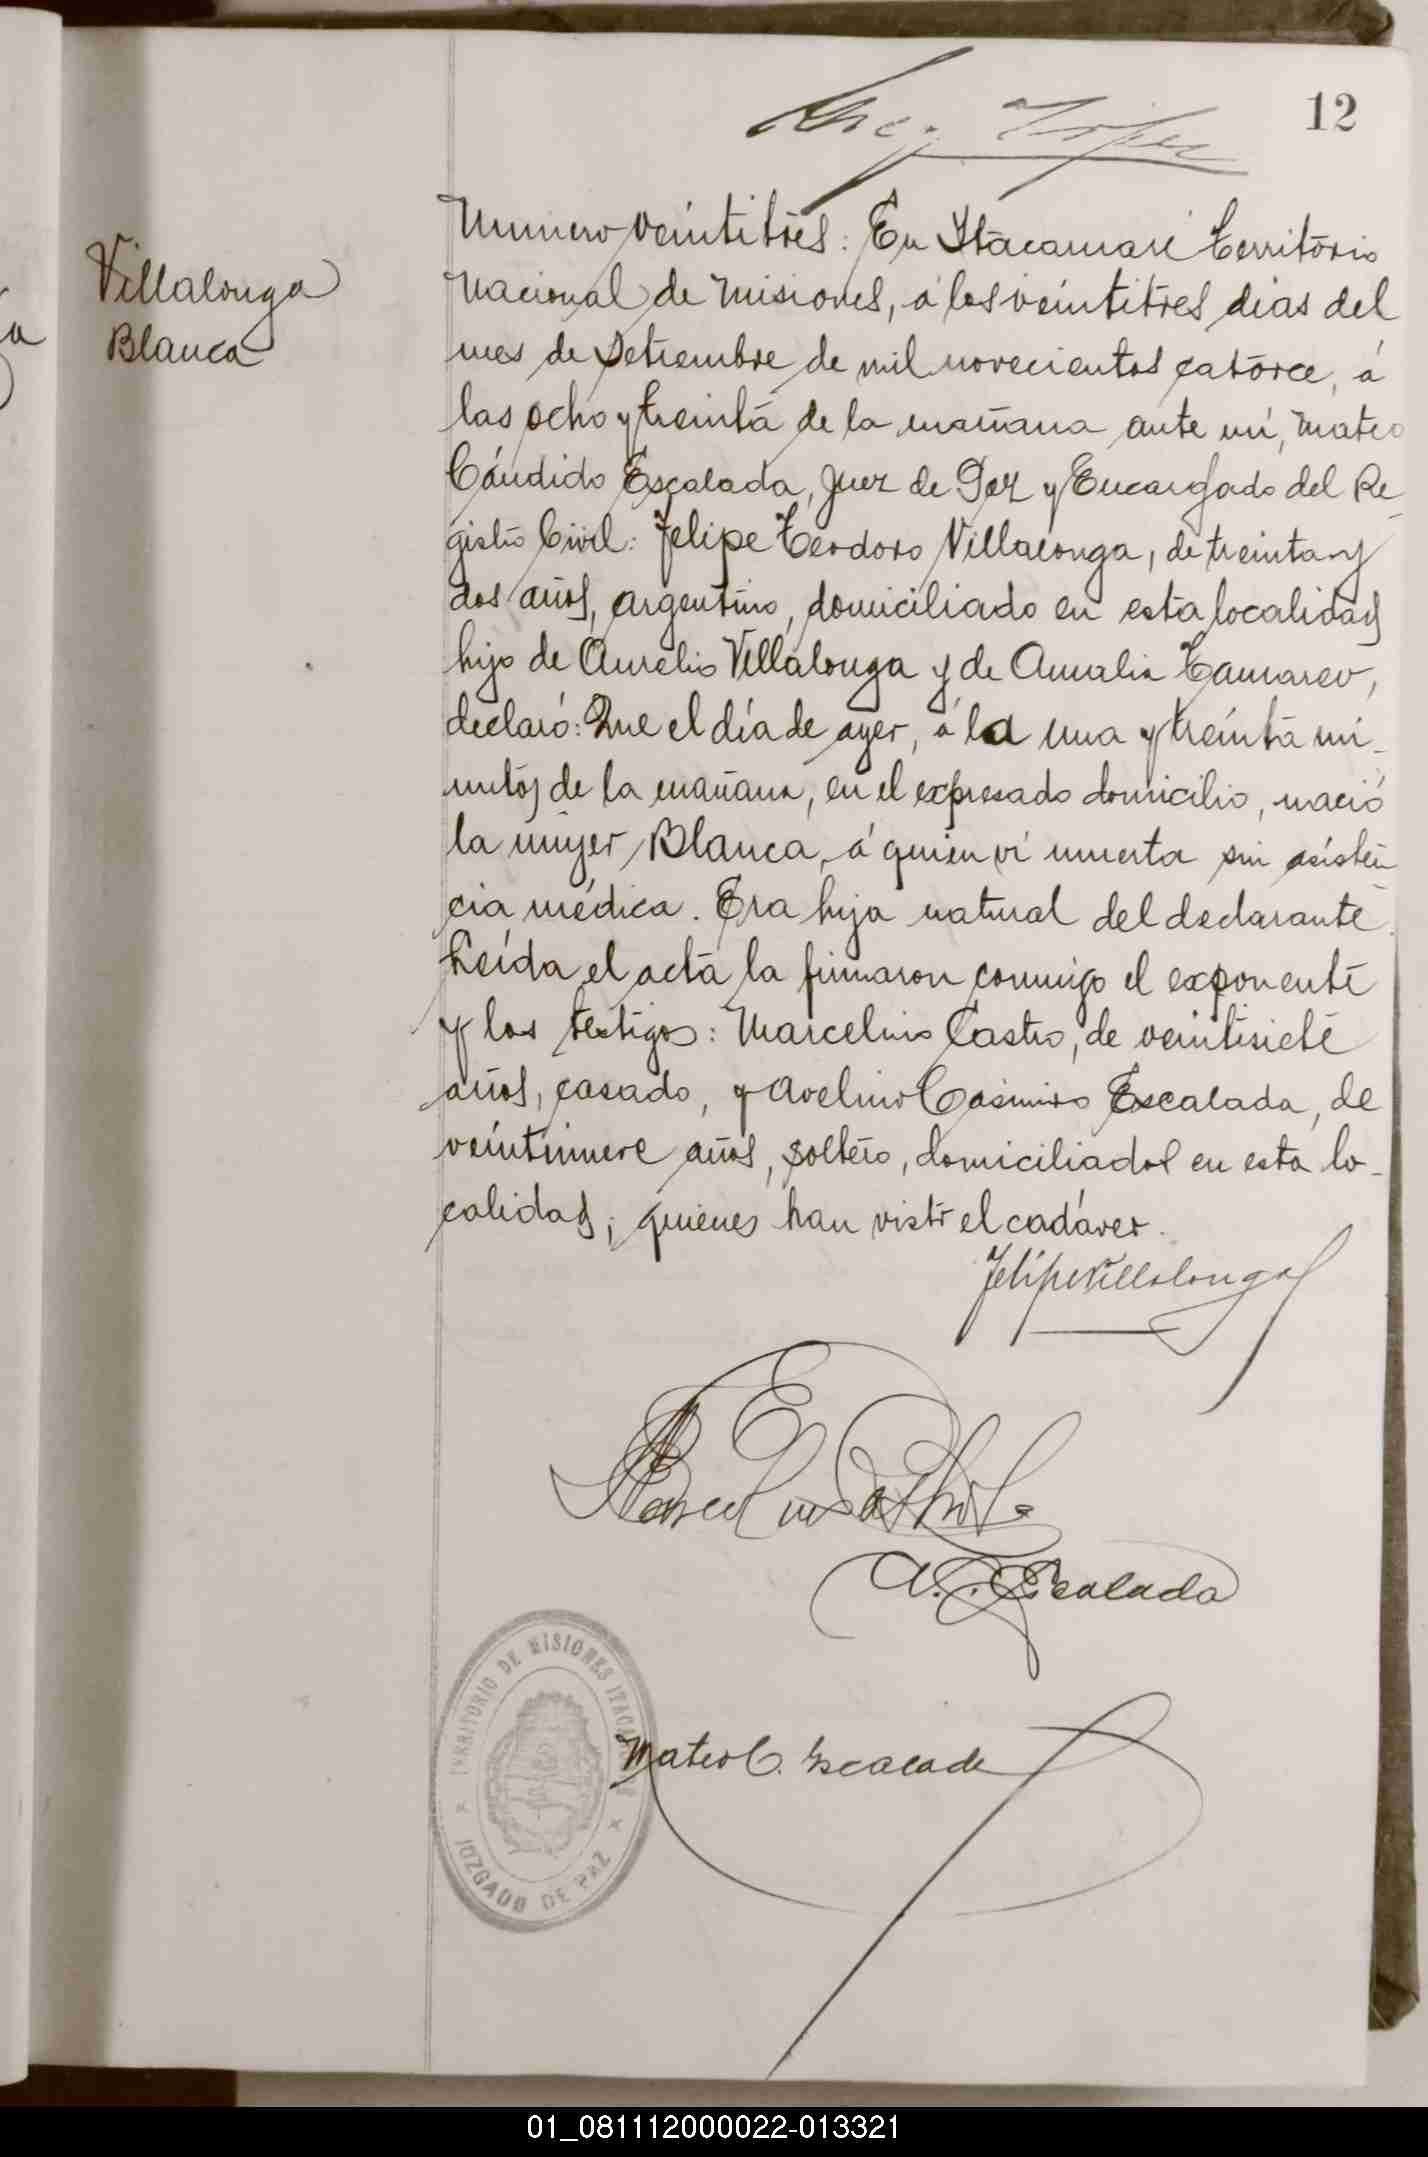 12
Villalonga
Blanca
Número veintitrés: En Itacaruaré Territorio
Nacional de Misiones, á los veintitres dias del
mes de Setiembre de mil novecientos catorce, á
las ocho y treinta de la mañana ante mí, Mateo
Cándido Escalada, Juez de Paz y Encargado del Re_
gistro Civil: Felipe Teodoro Villalonga, de treinta y
dos años, argentino, domiciliado en esta localidad
hijo de Aurelio Villalonga y de Amalia
declaró: Que el día de ayer, á la una y treinta mi_
nutos de la mañana, en el expresado domicilio, nació
la mujer Blanca, á quien ví muerta sin asisten
cia médica. Era hija natural del declarante.
Leída el acta la firmaron conmigo el exponente
y los testigos: Marcelino Castro, de veintisiete
años, casado, y Avelino Casimiro Escalada, de
veintinueve años, soltero, domiciliados en esta lo_
calidad; quienes han visto el cadáver.
Felipe Villalonga
A. C. Escalada
TERRITORIO DE MISIONES
JUZGADO DE PAZ
Mateo C. Escalada
01_081112000022-013321